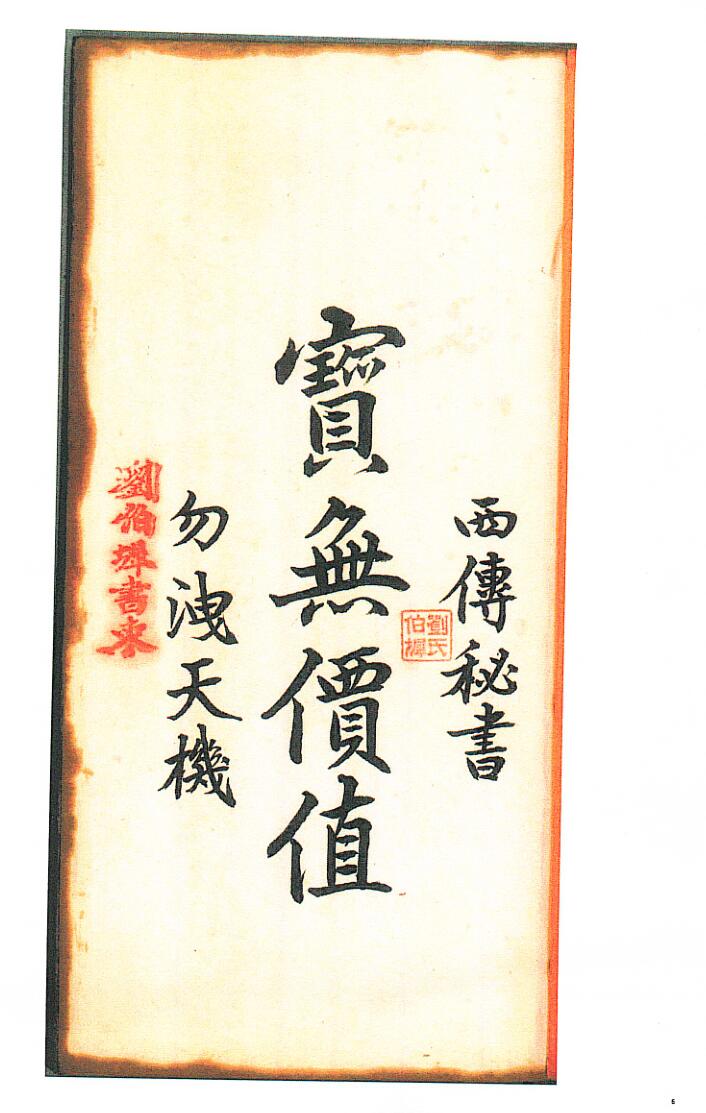 西傳秘書
劉氏
伯
寶無價值
勿洩天機
劉伯墀書柬